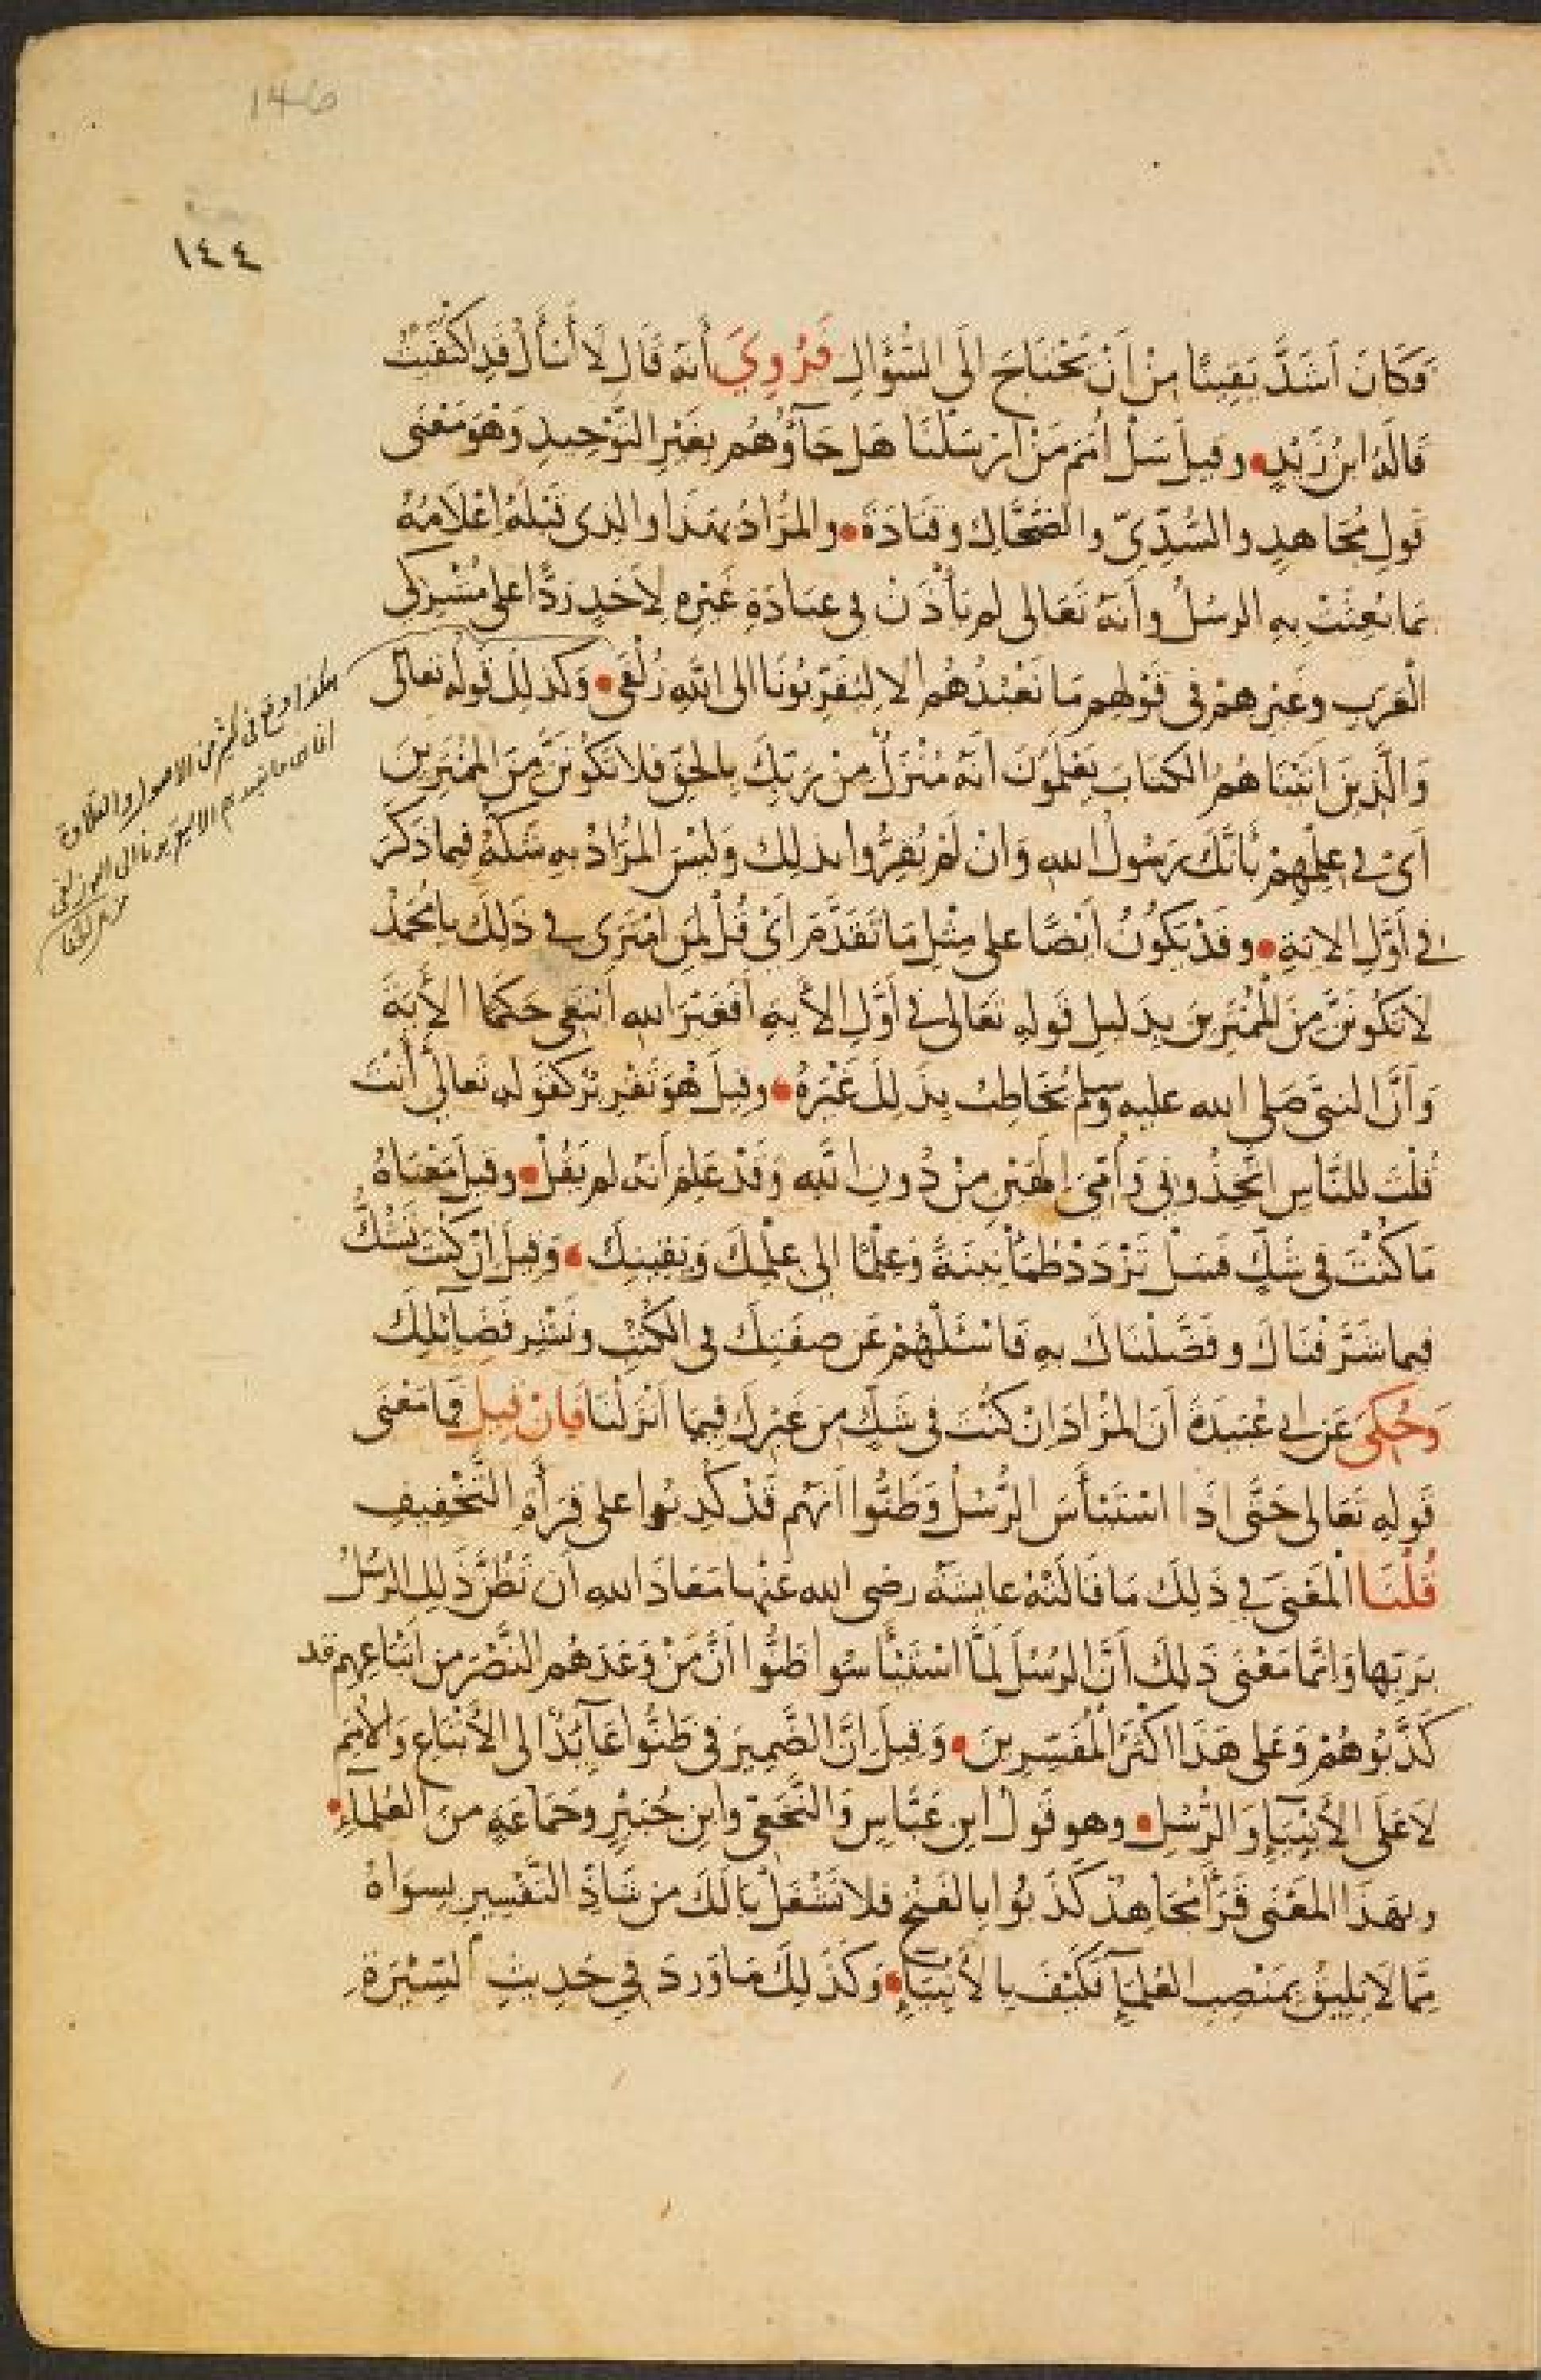 146
١٤٤
فَكَانَ اَشَدَّ يَقِينًا مِنْ اَنْ يَحْتَاجَ اِلَى السُّؤَالِ فَرُوِيَ أَنَّهُ قَالَ لَا أَسْأَلُ قَدِ اكْتَفَيْتُ
قَالَهُ ابنُ زَيْدٍ • وقيلَ سَلْ اُمَمَ مَنْ اَرْسَلْنَا هَل جَآؤُهُم بِغَيْرِ التَّوْحِيدِ وَهْوَ مَعْنَى
قَولِ مُجَاهِدٍ والسُّدِّيِّ والضَّحَّاكِ وقَتَادَةَ • والمُرَادُ بهَذَا والذِى قَبْلَهُ اِعْلَامُهُ
بمَا بُعِثَتْ بِهِ الرسُلُ وأنَّهُ تَعَالى لم يَأْذَنْ فى عبَادَةِ غَيْرِهِ لِأَحَدٍ رَدًّا على مُشْرِكِى
الْعَرَبِ وغَيْرِهِمْ فى قَوْلهِم مَا نَعْبُدُهُم الا لِيُقَرِّبُونَا الى اللهِ زُلْفَى • وَكَذلِكَ قَولُه تعالَى
وَالَّذِينَ اتَيْنَاهُمُ الكتَابَ يَعْلَمُونَ اَنَّهُ مُنْزَلٌ مِنْ رَبِّكَ بِالحَقِّ فلا تَكُونَنَّ مِنَ المُمْتَرِينَ
اَىْ فى عِلْمِهِمْ بأَنَّكَ رَسُولُ اللهِ وَانْ لَمْ يُقِرُّوا بذلِك وَلَيْسَ المُرَادُ بهِ شَكَّهُ فيما ذَكَرَ
فى اَوَّلِ الايَةِ • وقَدْ يَكُونُ اَيْضًا على مِثْلِ مَا تَقَدَّمَ اَىْ قُلْ لِمَنِ امْتَرَى فى ذَلِكَ يا مُحَمَّدُ
لَا تَكُونَنَّ مِنَ المُمْتَرِينَ بِدَليلِ قَولهِ تَعَالى فى اَوَّلِ الأيةِ أفَغَيْرَ اللهِ اَبْتَغِى حَكَمًا الأيَةَ
وَأَنَّ النبىَّ صَلى الله عليهِ وسلم يُخَاطِبُ بِذَلِكَ غَيْرَهُ • وقيلَ هُوَ تَقْرِيرٌ كَقَولهِ تَعالَى أَنْتَ
قُلْتَ للنَّاسِ اتَّخِذُونِى وَأُمِّىَ اِلهَيْنِ مِنْ دُونِ اللهِ وَقَدْ عَلِمَ اَنَّهُ لم يَقُلْ • وقيلَ مَعْنَاهُ
مَا كُنْتَ فى شَكٍّ فَسَلْ تَزْدَدْ طُمَأْنِينَةً وَعِلْمًا الى عِلْمِكَ وَيَقِينِكَ • وَقيلَ اِنْ كُنْتَ تَشُكُّ
فِيما شَرَّفْنَاكَ وفَضَّلْنَاكَ بِهِ فَاسْئَلْهُمْ عَنْ صِفَتِكَ فى الكُتُبِ ونَشْرِ فَضَائِلِكَ
وَحُكِىَ عَن ابى عُبَيْدَةَ أنَّ المُرَادَ اِنْ كُنْتَ فى شَكٍّ مِن غَيْرِكَ فِيمَا اَنْزَلْنَا فَاِنْ قِيلَ فَمَا مَعْنَى
قَولِهِ تَعَالى حَتَّى اِذَا اسْتَيْأَسَ الرُّسُلُ وَظَنُّوا اَنَّهُم قَدْ كُذِبُوا على قِرَأةِ التَّخْفِيفِ
قُلْنَا المَعْنَى فى ذَلِكَ مَا قَالَتْهُ عايشَةُ رضى الله عَنْها مَعَاذَ اللهِ اَن تَظُنَّ ذَلِكَ الرُّسُلُ
بِرَبِّها وَاِنَّمَا مَعْنَى ذَلِكَ اَنَّ الرسُلَ لَمَّا اسْتَيْأَسُوا ظَنُّوا اَنَّ مَنْ وَعَدَهُم النَّصْرَ مِن اَتْبَاعِهِم قد
كَذَّبُوهُمْ وَعَلى هَذَا اكْثَرُ المُفَسِّرِينَ • وَقِيلَ اِنَّ الضَّمِيرَ فى ظَنُّوا عَآئِدٌ الى الأَتْبَاعِ وَالأُمَمِ
لَا عَلَى الأَنْبِيَاءِ وَالرُّسُلِ • وهو قَولُ ابنِ عَبَّاسٍ وَالنَّخَعِىِّ وابنِ جُبَيْرٍ وجَمَاعَةٍ مِنَ العُلَمَاءِ •
وبهَذَا المَعْنَى قَرَأَ مُجَاهِدٌ كَذَبُوا بالفَتْحِ فلا تَشْغَلْ بَالَكَ مِن شَاذِّ التَّفْسِيرِ بِسِوَاهُ
مِمَّا لَا يَلِيقُ بِمَنْصِبِ العُلَمَاءِ فَكَيْفَ بِالأَنْبِيَاءِ • وَكَذَلِكَ مَا وَرَدَ فى حَدِيثِ السِّيْرَةِ
هكذا وقع فى كثير من الاصول والتلاوة
انما هى ما نعبدهم الا ليقربونا الى الله زلفى